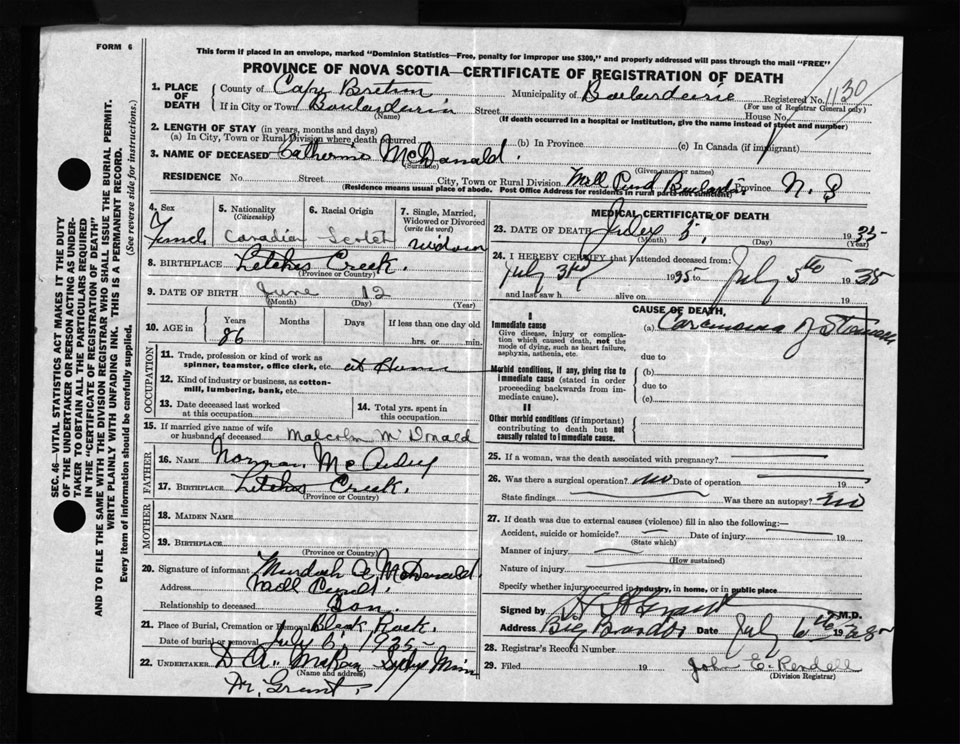 FORM 6
This form if placed in an envelope, marked "Dominion Statistics—Free, penalty for improper use $300," and properly addressed will pass through the mail "FREE"
PROVINCE OF NOVA SCOTIA—CERTIFICATE OF REGISTRATION OF DEATH
SEC. 46—VITAL STATISTICS ACT MAKES IT THE DUTY
OF THE UNDERTAKER OR PERSON ACTING AS UNDER-
TAKER TO OBTAIN ALL THE PARTICULARS REQUIRED
IN THE "CERTIFICATE OF REGISTRATION OF DEATH"
AND TO FILE THE SAME WITH THE DIVISION REGISTRAR WHO SHALL ISSUE THE BURIAL PERMIT.
WRITE PLAINLY WITH UNFADING INK. THIS IS A PERMANENT RECORD.
Every item of information should be carefully supplied. (See reverse side for instructions.)
1. PLACE OF DEATH
County of Cape Breton Municipality of Boularderie Registered No. 1130
(For use of Registrar General only)
If in City or Town Boularderie Street House No.
(Name) (If death occurred in a hospital or institution, give the name instead of street and number)
2. LENGTH OF STAY (in years, months and days)
(a) In City, Town or Rural Division where death occurred (b) In Province (c) In Canada (if immigrant)
3. NAME OF DECEASED Catherine McDonald.
(Surname) (Given name or names)
RESIDENCE No. Street City, Town or Rural Division Mill Pond Province N. S
(Residence means usual place of abode. Post Office Address for residents in rural parts not sufficient)
4. Sex Female
5. Nationality (Citizenship) Canadian
6. Racial Origin Scotch
7. Single, Married, Widowed or Divorced (write the word) widow
8. BIRTHPLACE Leitches Creek.
(Province or Country)
9. DATE OF BIRTH June 12
(Month) (Day) (Year)
10. AGE in Years Months Days If less than one day old
86 hrs. or min.
OCCUPATION
11. Trade, profession or kind of work as spinner, teamster, office clerk, etc. at Home
12. Kind of industry or business, as cotton-mill, lumbering, bank, etc.
13. Date deceased last worked at this occupation
14. Total yrs. spent in this occupation
15. If married give name of wife or husband of deceased Malcolm McDonald
FATHER
16. NAME Norman
17. BIRTHPLACE Leitches Creek.
(Province or Country)
MOTHER
18. MAIDEN NAME
19. BIRTHPLACE
(Province or Country)
20. Signature of informant Murdoch A McDonald.
Address Mill Pond.
Relationship to deceased Son.
21. Place of Burial, Cremation or Removal Black Rock.
Date of burial or removal July 6, 1935
22. UNDERTAKER D A. McRae Sydney Mines
(Name and address)
Dr. Grant.
MEDICAL CERTIFICATE OF DEATH
23. DATE OF DEATH July 5, 1935
(Month) (Day) (Year)
24. I HEREBY CERTIFY that I attended deceased from:
July 3rd 1935 to July 5th 1935
and last saw h alive on 19
CAUSE OF DEATH
I
Immediate cause
Give disease, injury or complication which caused death, not the mode of dying, such as heart failure, asphyxia, asthenia, etc.
(a) Carcinoma of Stomach
due to
Morbid conditions, if any, giving rise to immediate cause (stated in order proceeding backwards from immediate cause).
(b)
due to
(c)
II
Other morbid conditions (if important) contributing to death but not causally related to immediate cause.
25. If a woman, was the death associated with pregnancy?
26. Was there a surgical operation? no Date of operation 19
State findings Was there an autopsy? no
27. If death was due to external causes (violence) fill in also the following:—
Accident, suicide or homicide? Date of injury 19
(State which)
Manner of injury
(How sustained)
Nature of injury
Specify whether injury occurred in industry, in home, or in public place
Signed by Grant M.D.
Address Big Bras d'Or Date July 6th 1935
28. Registrar's Record Number
29. Filed 19 John E. Rendell
(Division Registrar)